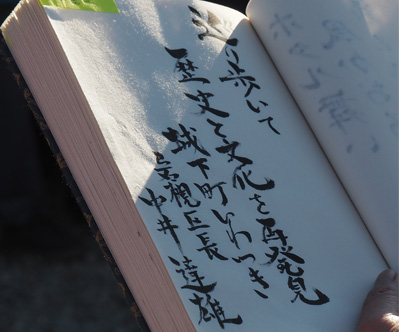 歩いて
歴史と文化を再発見
城下町いわつき
岩槻区長
中井達雄